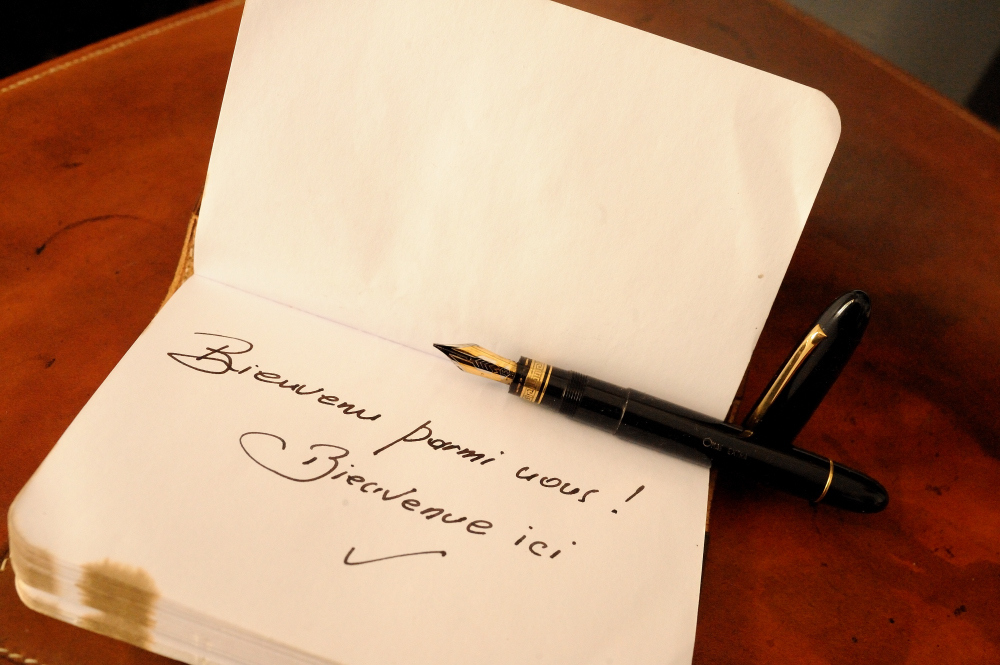 Bienvenu parmi nous !
Bienvenue ici